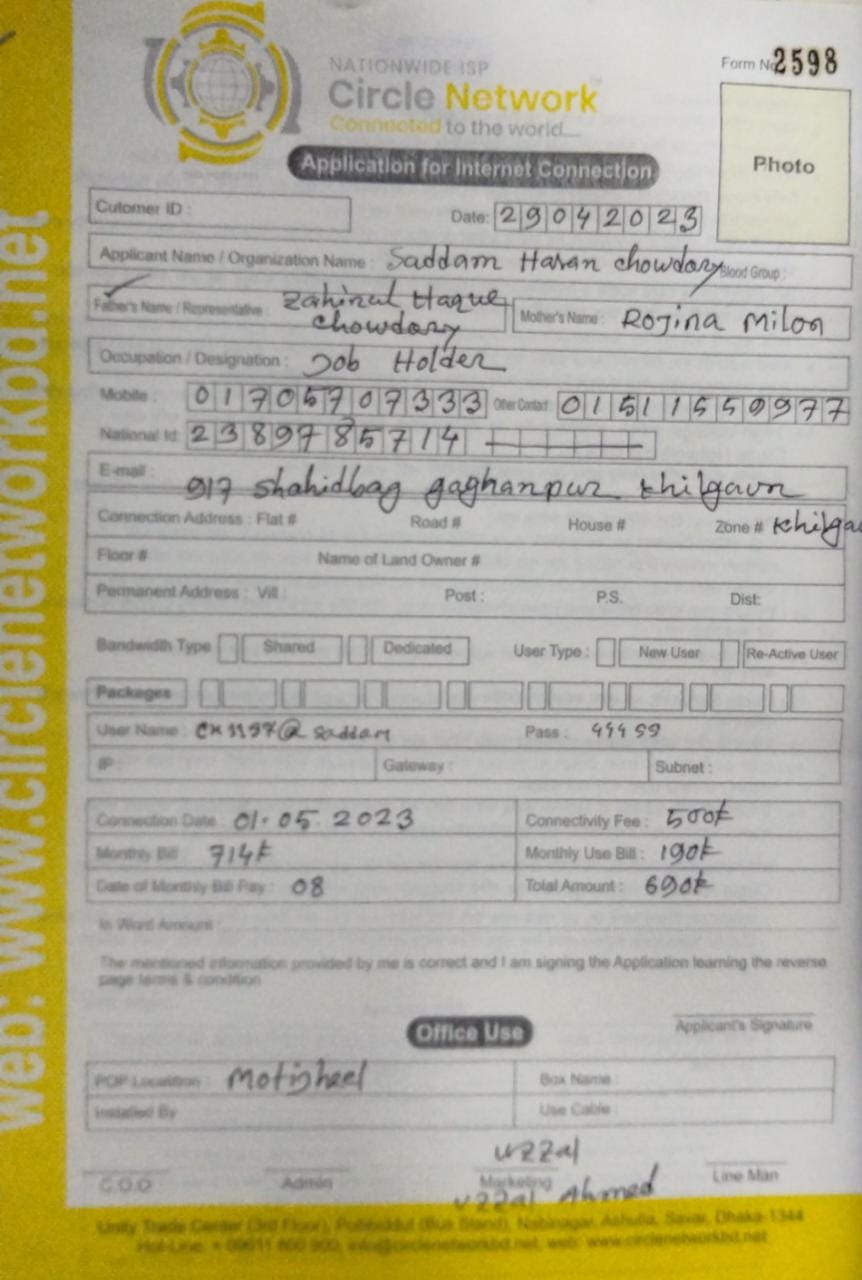 NATIONWIDE ISP
Form No 2598
Circle Network
Connected to the world...
Application for Internet Connection
Photo
Cutomer ID :
Date: 29042023
Applicant Name / Organization Name : Saddam Hasan chowdory Blood Group :
Father's Name / Representative : Zahinul Haque chowdory
Mother's Name : Rojina Milon
Occupation / Designation : Job Holder
Mobile : 01705707333 Other Contact : 01511559977
National Id: 2389785714
E-mail :
917 shahidbag gaghanpur khilgaun
Connection Address : Flat # Road # House # Zone # Khilga
Floor # Name of Land Owner #
Permanent Address : Vill : Post : P.S. Dist:
Bandwidth Type Shared Dedicated User Type : New User Re-Active User
Packages
User Name : CM1197@saddam Pass : 44459
IP : Gateway : Subnet :
Connection Date : 01.05.2023 Connectivity Fee : 500k
Monthly Bill : 714k Monthly Use Bill : 190k
Date of Monthly Bill Pay : 08 Total Amount : 690k
In Word Amount :
The mentioned information provided by me is correct and I am signing the Application learning the reverse
page terms & condition
Applicant's Signature
Office Use
POP Location : Motijheel Box Name :
Installed By Use Cable :
uzzal
C.O.O Admin Marketing Line Man
uzzal Ahmed
Unity Trade Center (3rd Floor), (Bus Stand), Nabinagar, Ashulia, Savar, Dhaka-1344
Hot-Line: + 09611 800 900, info@circlenetworkbd.net, web: www.circlenetworkbd.net
web: www.circlenetworkbd.net